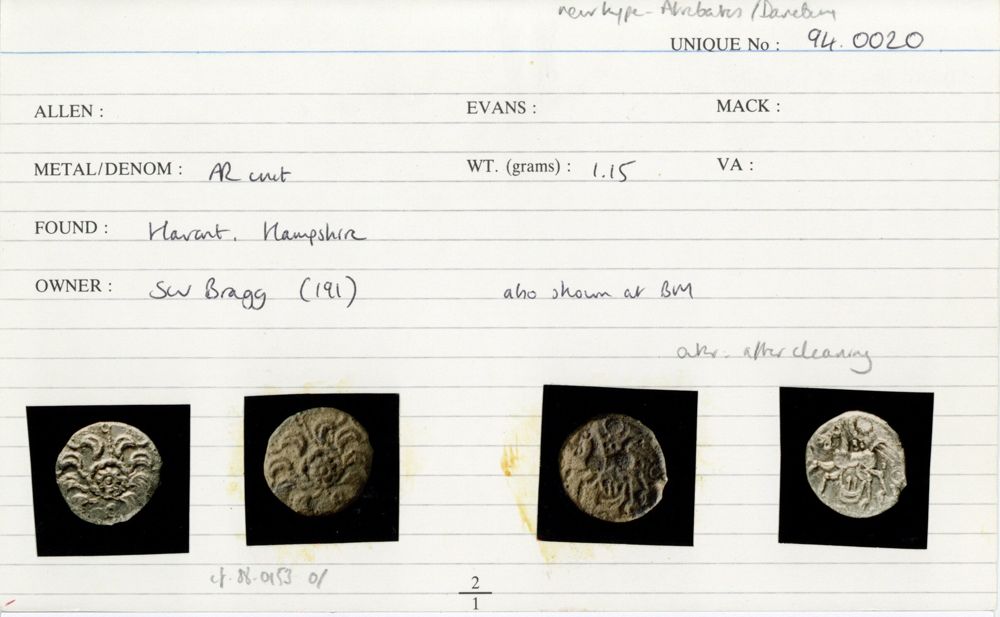 new type - Atrebates / Danebury
UNIQUE No : 94.0020
ALLEN : EVANS : MACK :
METAL/DENOM : AR unit WT. (grams) : 1.15 VA :
FOUND : Havant, Hampshire
OWNER : SW Bragg (191) also shown at BM
outer - after cleaning
cf. 88-0153 o/
2
1